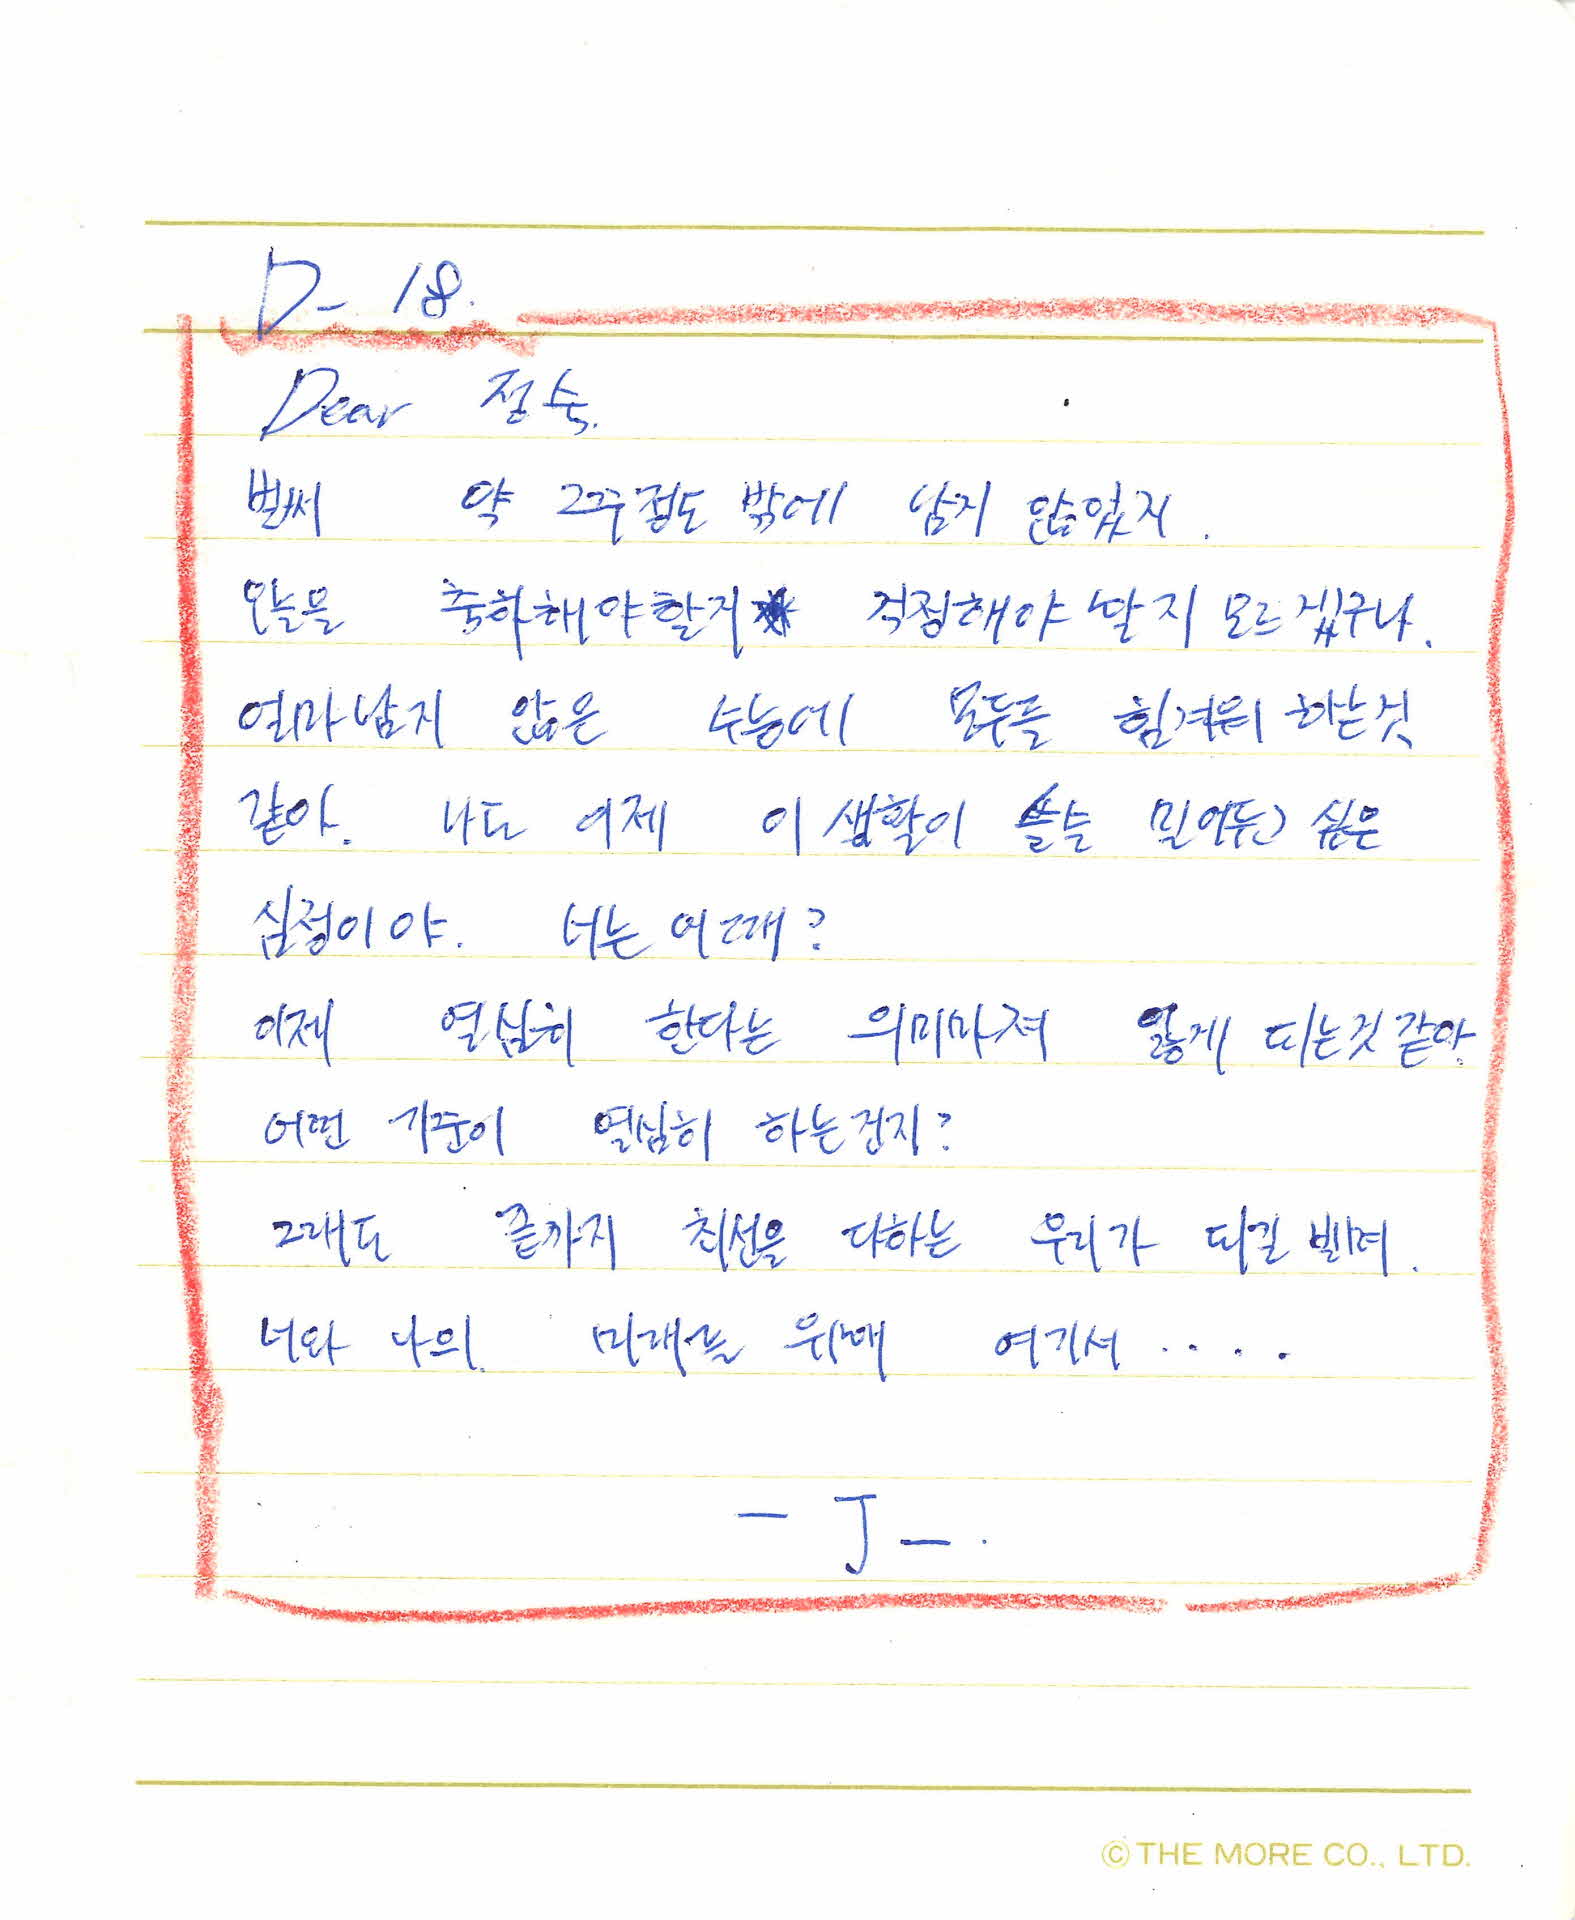 D- 18.
Dear 정숙.
벌써 약 2주정도 밖에 남지 않았지.
오늘을 축하해야할지 걱정해야 할지 모르겠구나.
얼마남지 않은 수능에 모두들 힘겨워 하는것
같아. 나도 이제 이 생활이 슬슬 밀어두고 싶은
심정이야. 너는 어때?
이제 열심히 한다는 의미마져 잃게 되는것 같아.
어떤 기준이 열심히 하는건지?
그래도 끝까지 최선을 다하는 우리가 되길 빌며.
너와 나의 미래를 위해 여기서 ....
- J -.
© THE MORE CO., LTD.